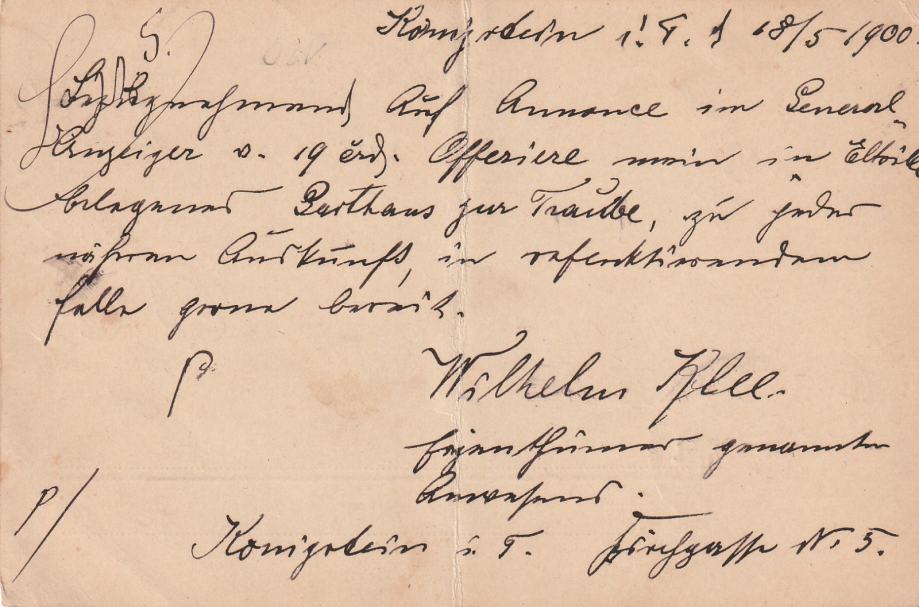 Königstein i. T. d 18/5 1900.
5.
Bezugnehmend Auf Annonce im General-
Anzeiger v. 19 crd. Offeriere mein in Eltville
belegenes Gasthaus zur Traube, zu jeder
näheren Auskunft, in reflektierendem
falle gerne bereit.
Wilhelm Klee.
Eigenthümer genannten
Anwesens.
Königstein i. T. Kirchgasse Nr. 5.